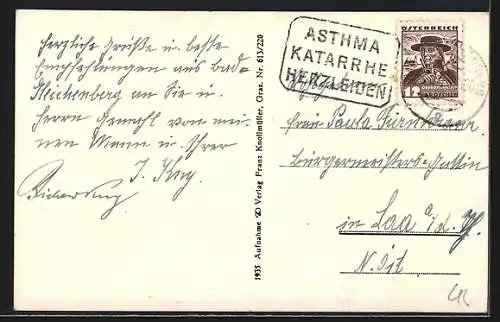 herzliche Grüße u. beste
Empfehlungen aus Bad-
Gleichenberg an Sie u.
Herrn Gemahl von mei-
nem Mann u. Ihrer
1935 Aufnahme Verlag Franz Knollmüller, Graz. Nr. 613/220
ASTHMA
KATARRHE
HERZLEIDEN
ÖSTERREICH
12
GROSCHEN
Frau Paula
Bürgermeisters-Gattin
in Laa a/d. Th.
N. Öst.